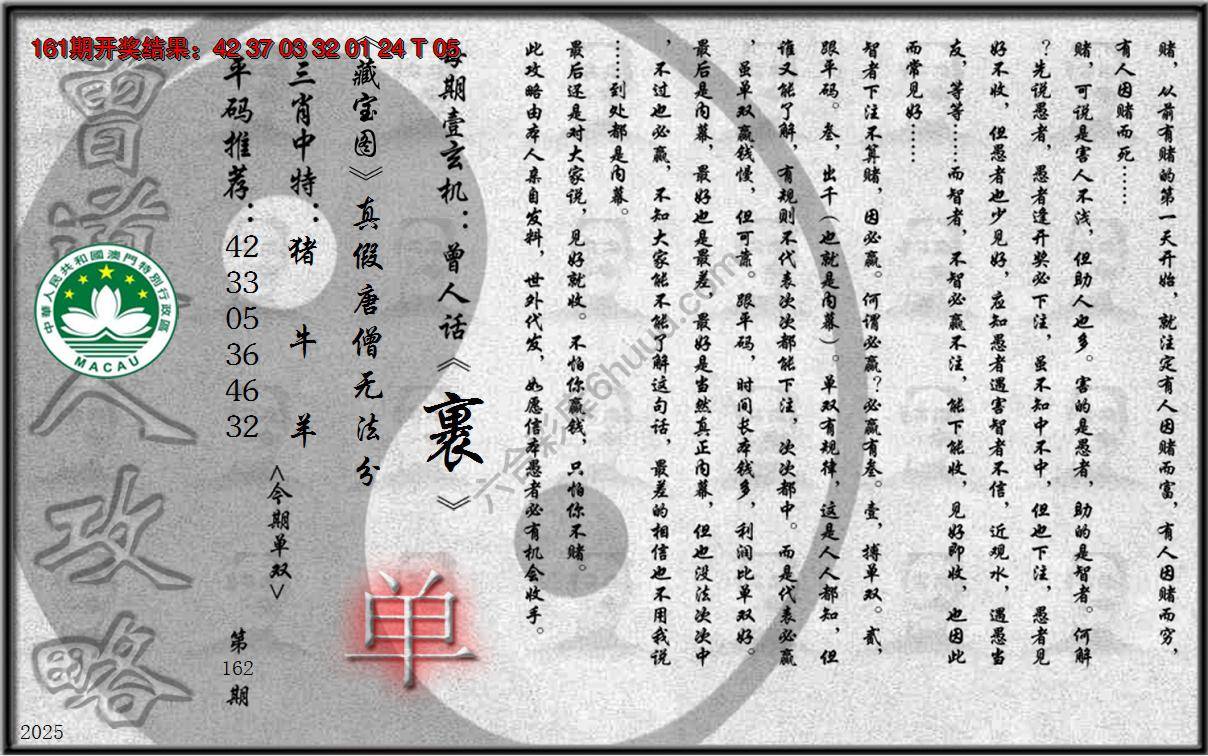 161期开奖结果：42 37 03 32 01 24 T 05
赌，从前有赌的第一天开始，就注定有人因赌而富，有人因赌而穷，
有人因赌而死……
赌，可说是害人不浅，但助人也多。害的是愚者，助的是智者。何解
？先说愚者，愚者逢开奖必下注，虽不知中不中，但也下注，愚者见
好不收，但愚者也少见好，应知愚者遇害智者不信，近观水，遇愚当
友，等等……而智者，不智必赢不注，能下能收，见好即收，也因此
而常见好……
智者下注不算赌，因必赢。何谓必赢？必赢有叁。壹，搏单双。贰，
跟平码。叁，出千（也就是内幕）。单双有规律，这是人人都知，但
谁又能了解，有规则不代表次次都能下注，次次都中。而是代表必赢
，虽单双赢钱慢，但可靠。跟平码，时间长本钱多，利润比单双好。
最后是内幕，最好也是最差，最好是当然真正内幕，但也没法次次中
，不过也必赢，不知大家能不能了解这句话，最差的相信也不用我说
……到处都是内幕。
最后还是对大家说，见好就收。不怕你赢钱，只怕你不赌。
此攻略由本人亲自发料，世外代发，如愿信本愚者必有机会收手。
每期壹玄机：曾人话《裹》
《藏宝图》真假唐僧无法分
单
三肖中特：猪 牛 羊
<今期单双>
平码推荐：
42
33
05
36
46
32
第
162
期
曾道人攻略
中華人民共和國澳門特別行政區
MACAU
六合彩库6huuu.com
2025